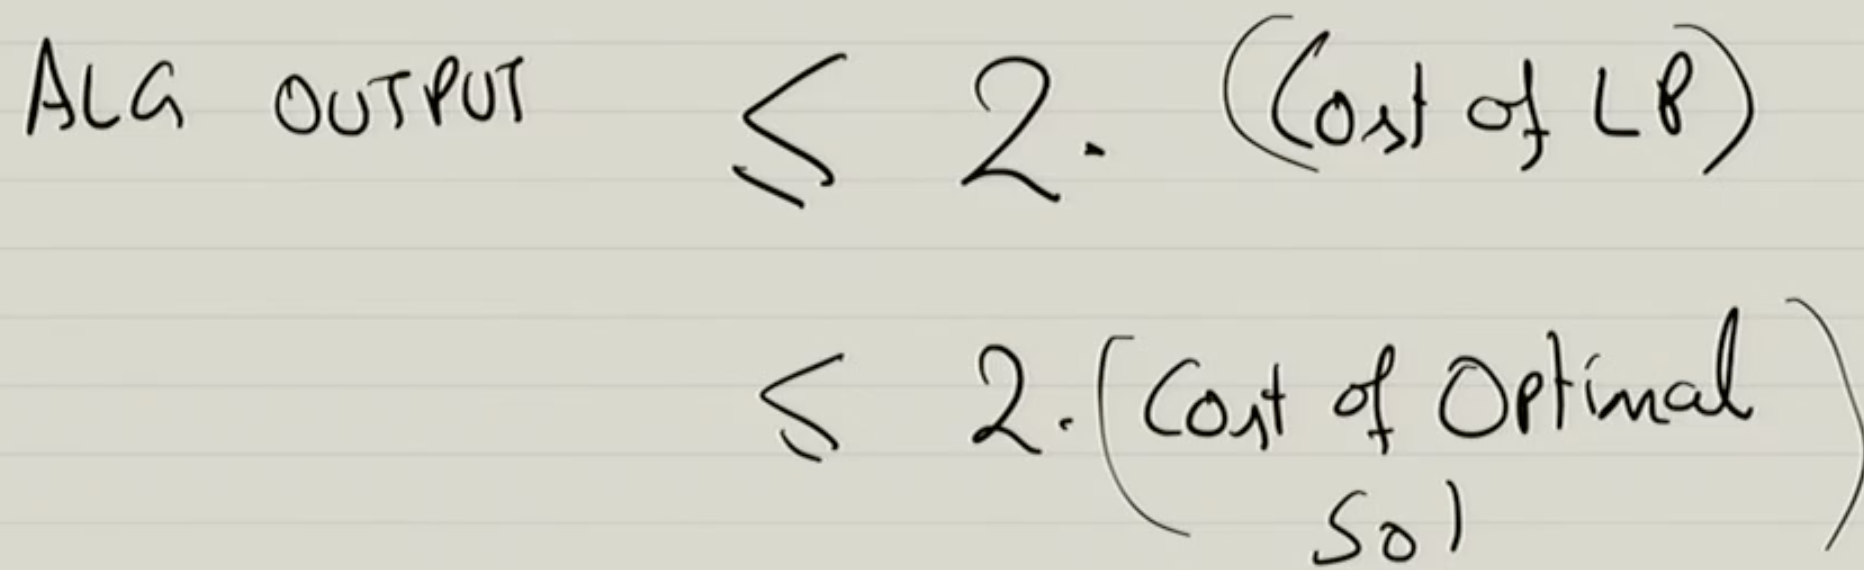 ALG OUTPUT ≤ 2. (Cost of LP)
≤ 2. (Cost of Optimal
Sol)